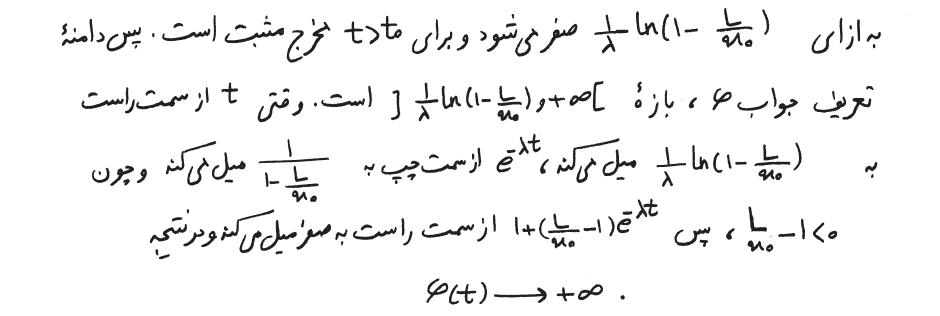 به ازای $\frac{1}{\lambda}\ln(1-\frac{L}{x_0})$ صفر می‌شود و برای $t>t_0$ مخرج مثبت است. پس دامنهٔ
تعریف جواب $\varphi$، بازهٔ $]\frac{1}{\lambda}\ln(1-\frac{L}{x_0}) و +\infty[$ است. وقتی $t$ از سمت راست
به $\frac{1}{\lambda}\ln(1-\frac{L}{x_0})$ میل می‌کند، $e^{-\lambda t}$ از سمت چپ به $\frac{1}{1-\frac{L}{x_0}}$ میل می‌کند و چون
$\frac{L}{x_0}-1<0$، پس $1+(\frac{L}{x_0}-1)e^{-\lambda t}$ از سمت راست به صفر میل می‌کند و در نتیجه
$\varphi(t)\longrightarrow +\infty$ .